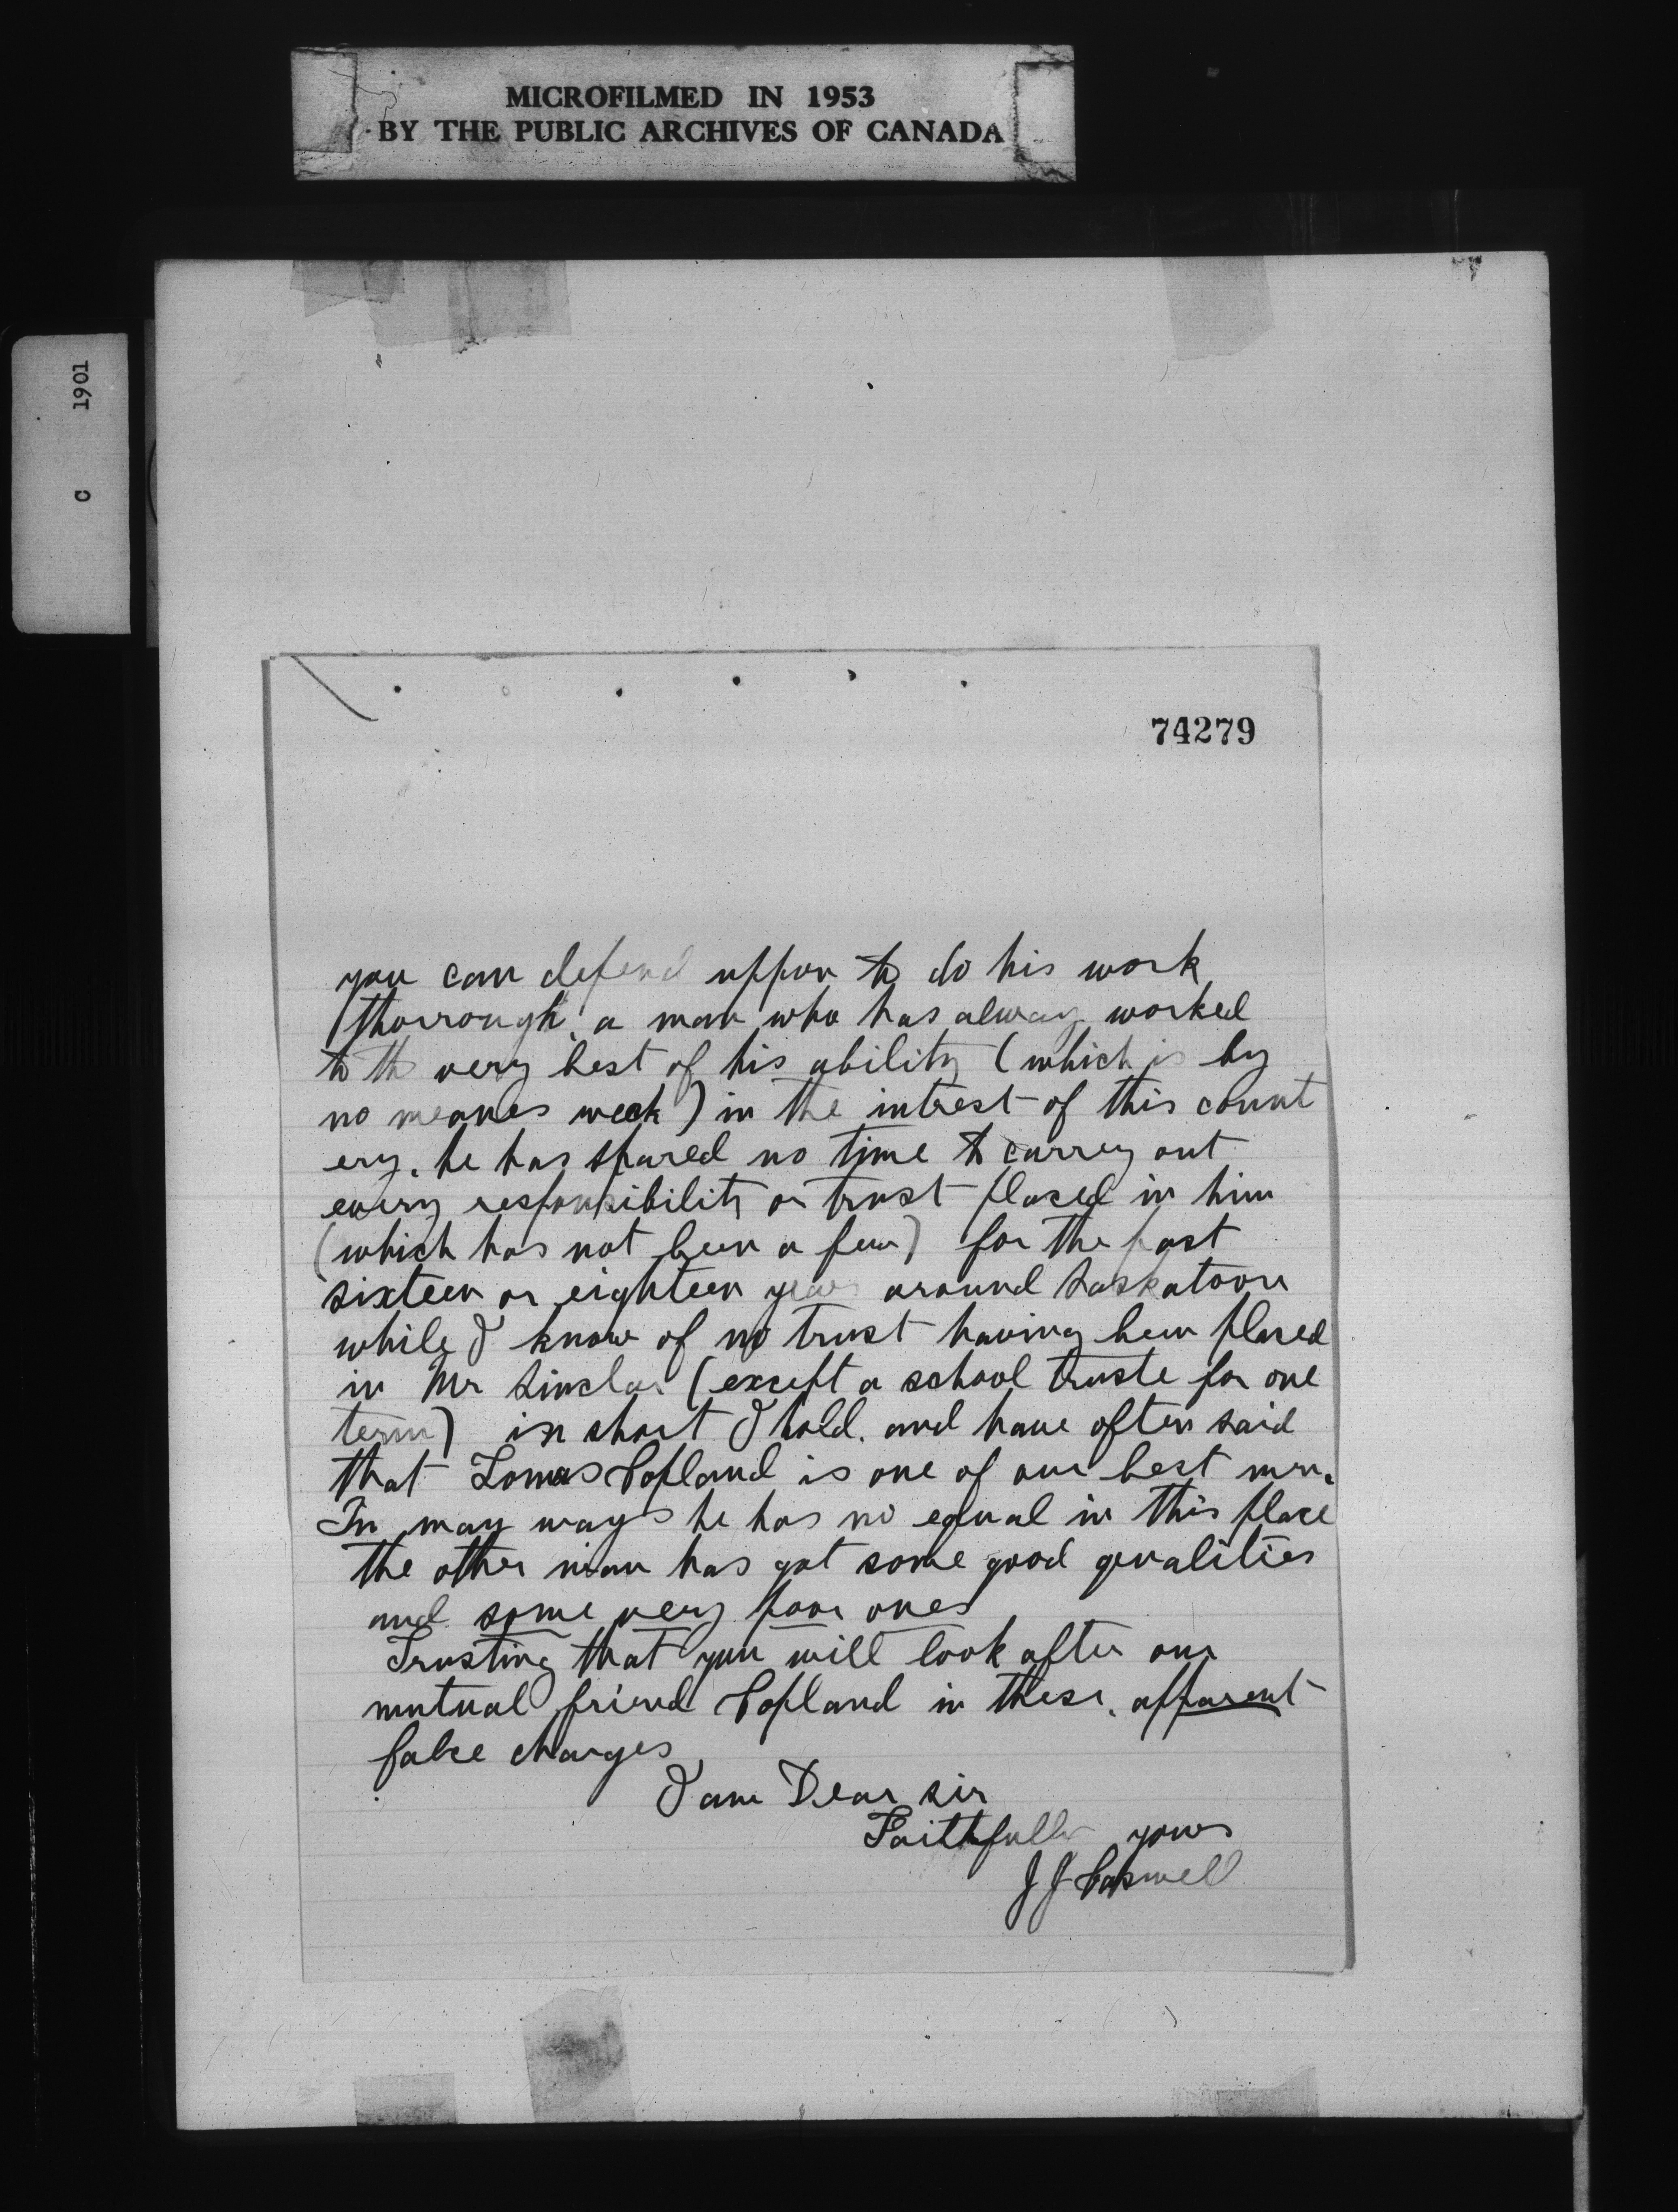 MICROFILMED IN 1953
BY THE PUBLIC ARCHIVES OF CANADA
C 1901
74279
you can depend uppon to do his work
thorrough, a man who has alway worked
to th very best of his ability (which is by
no meanes week) in the intrest of this count
ery. he has spared no time to carrey out
every responsibility or trust placed in him
(which has not been a few) for the past
sixteen or eighteen years around Saskatoon
while I know of no trust having been placed
in Mr Sinclar (except a school truste for one
term) in short I hold. and have often said
that Tomas Copland is one of our best men.
In may ways he has no equal in this place
the other man has got some good qualities
and some very poor ones
Trusting that you will look after our
mutual friend Copland in these. apparent
falce charges
I am Dear sir
Faithfully yours
J J Caswell